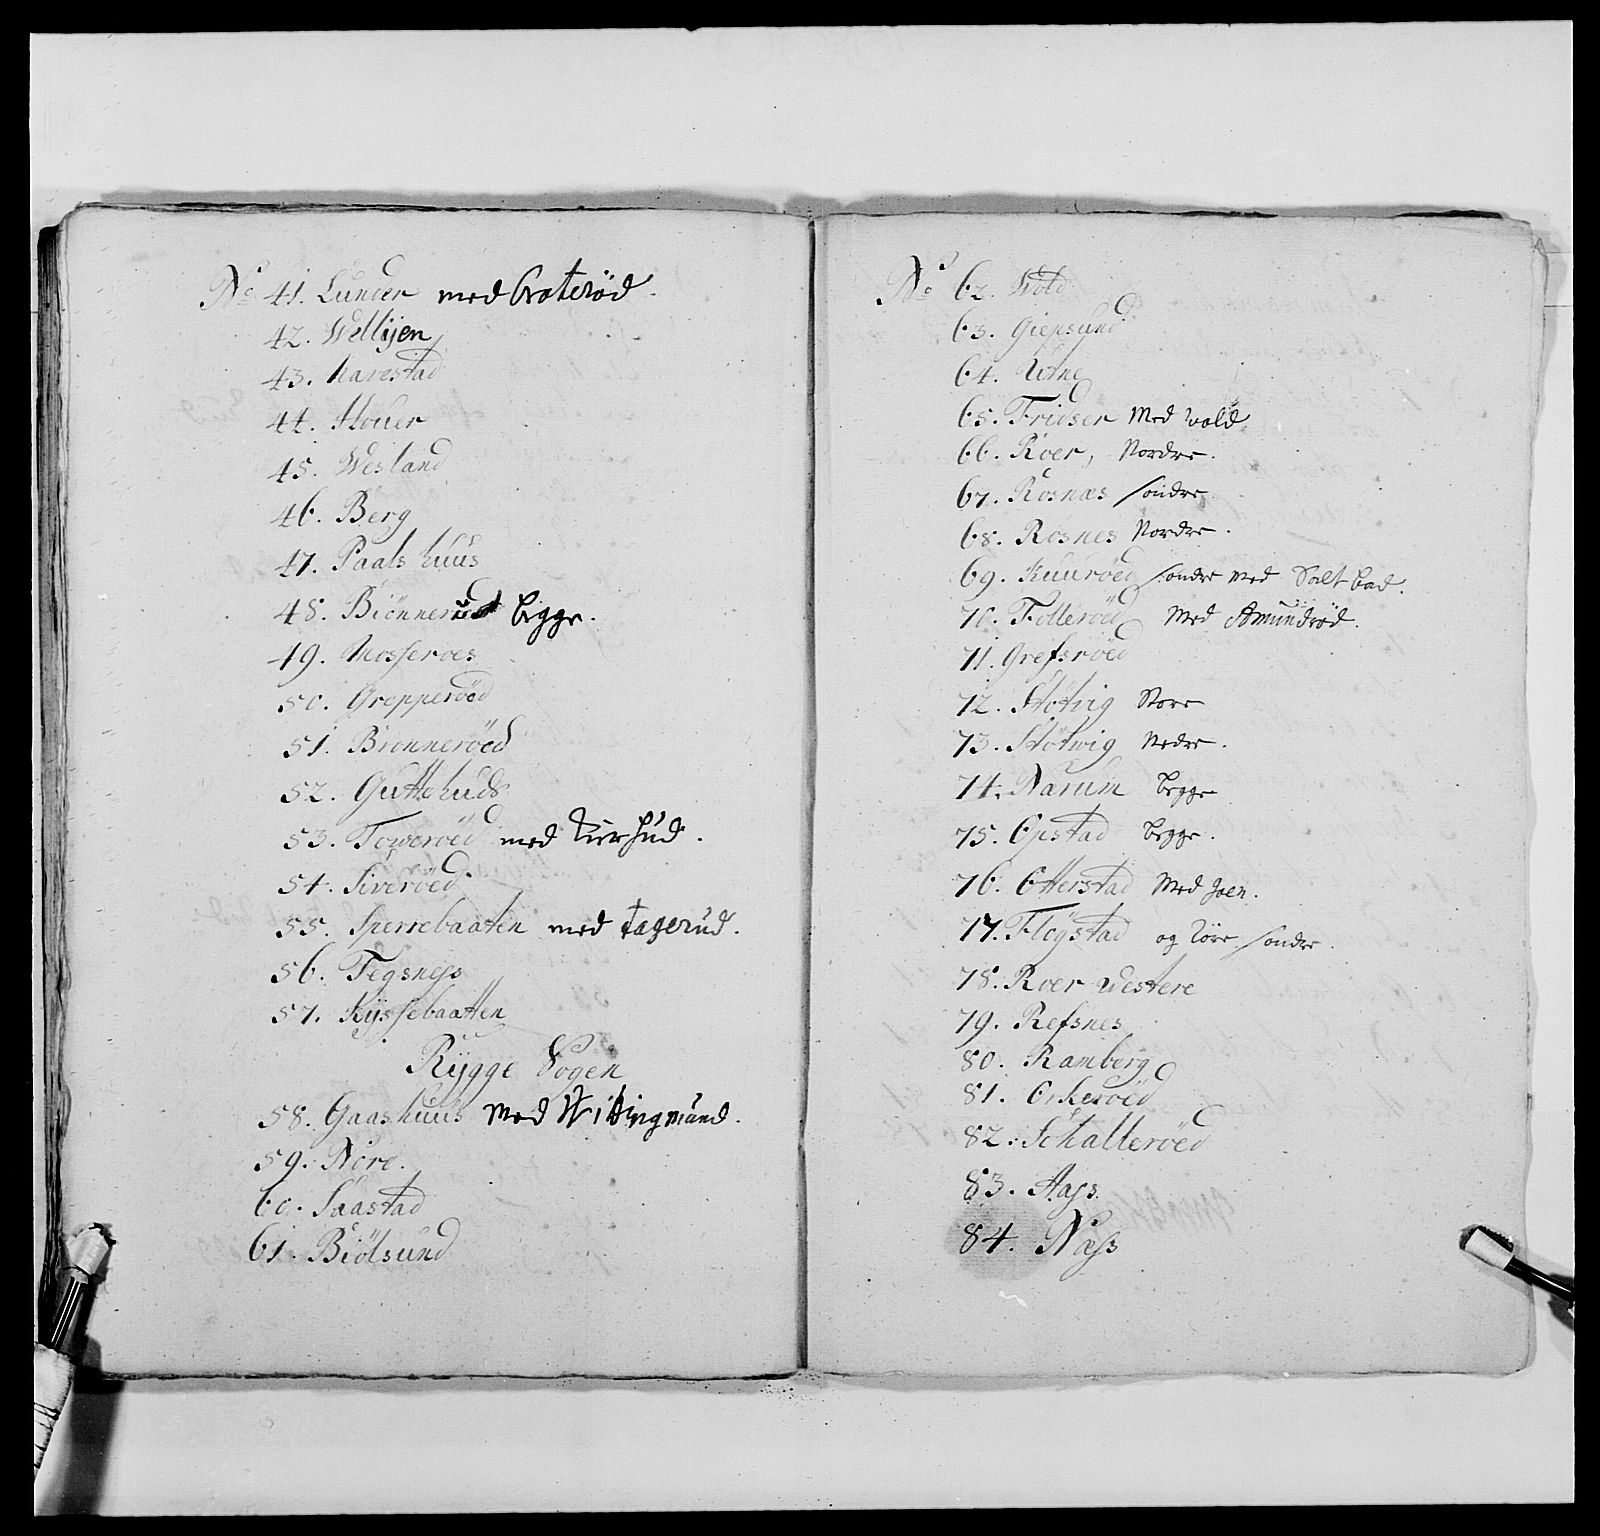 No 41. Lunder med Graterød.
42. Wellijen
43. Navestad
44. Houer
45. Wesland
46. Berg
47. Paals huus
48. Biönnerød begge.
49. Mosseroes
50. Grepperöed
51. Brønneröed
52. Guttehuds
53. Toweröed med
54. Siveröed
55. Sperrebaaten med tagerud.
56. Tegsness
57. Kijssebaatten
Rÿgge Sogen
58. Gaashuus med Wittingmund.
59. Nöre.
60. Saastad
61. Biölsund
No 62. Wold
63. Giepsund
64. Urne
65. Fridser med vold
66. Roer, Nordre.
67. Rosnæs søndre
68. Rosnes Nordre.
69. Kuuröed søndre med Saltbad.
70. Folleröed med Amundrød.
71. Grefsröed
72. Støtvig Store
73. Støtwig Nedre.
74. Narum begge
75. Opstad begge.
76. Otterstad med Joen.
77. Fløystad og søndre.
78. Roer westere
79. Refsnes
80. Ramberg
81. Orkeröed
82. Schalleröed
83. Aass.
84. Næss